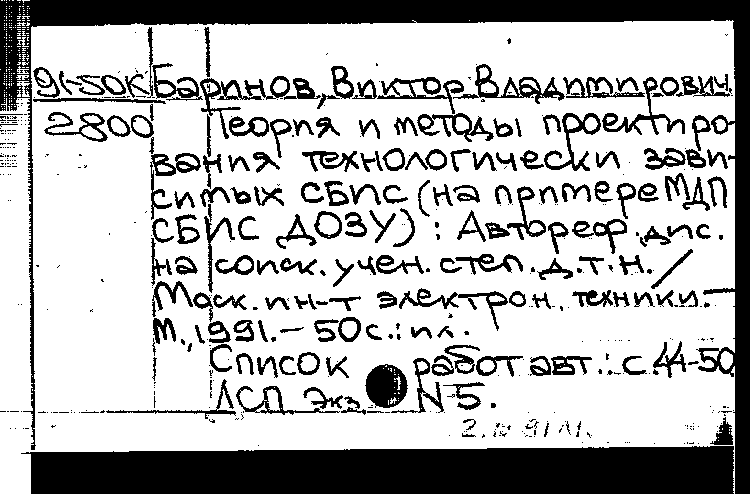 91-50К Баринов, Виктор Владимирович
2800 Теория и методы проектиро-
вания технологически зави-
симых СБИС (на примере МДП
СБИС ДОЗУ) : Автореф. дис.
на соиск. учен. степ. д.т.н. /
Моск. ин-т электрон. техники. —
М., 1991. — 50 с.: ил.
Список работ авт.: с. 44-50
ДСП Экз. N 5.